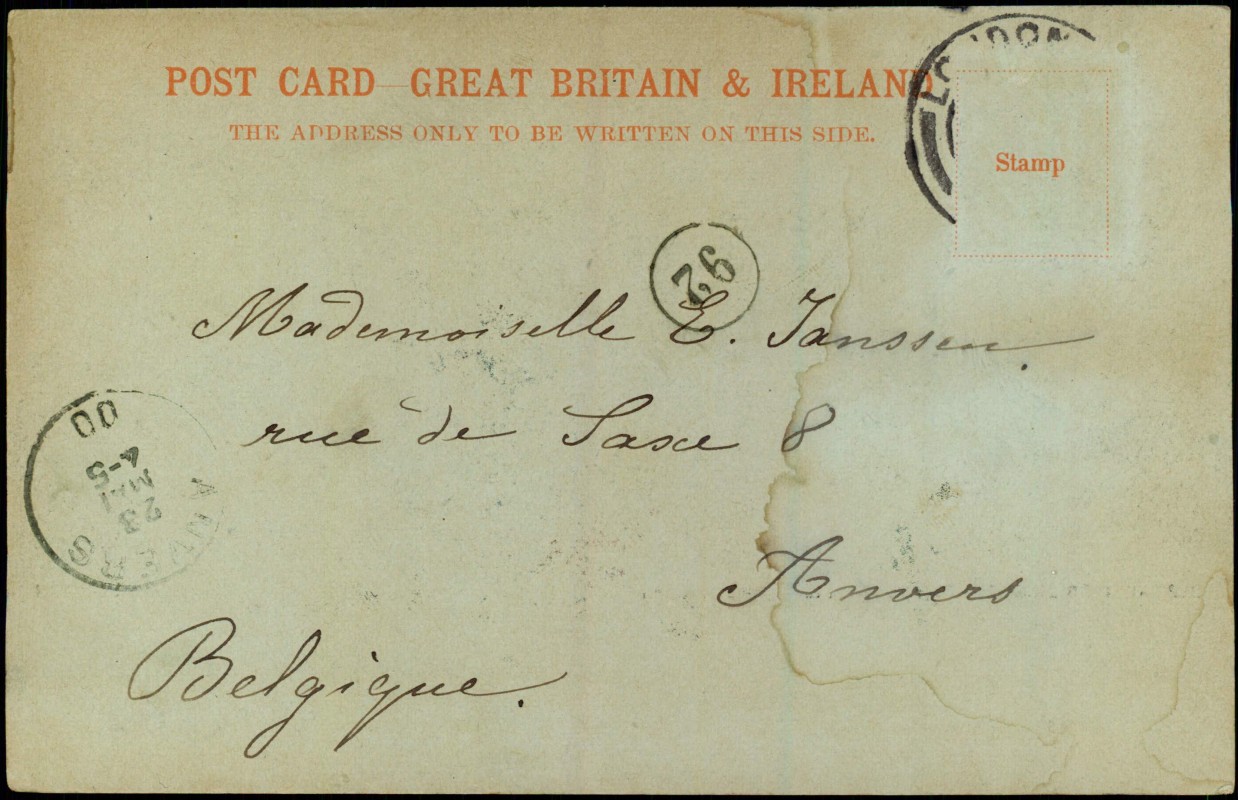 POST CARD—GREAT BRITAIN & IRELAND
THE ADDRESS ONLY TO BE WRITTEN ON THIS SIDE.
LONDON
Stamp
92
Mademoiselle E. Janssen
rue de Saxe 8
Anvers
Belgique.
ANVERS
23
MAI
4-5
00